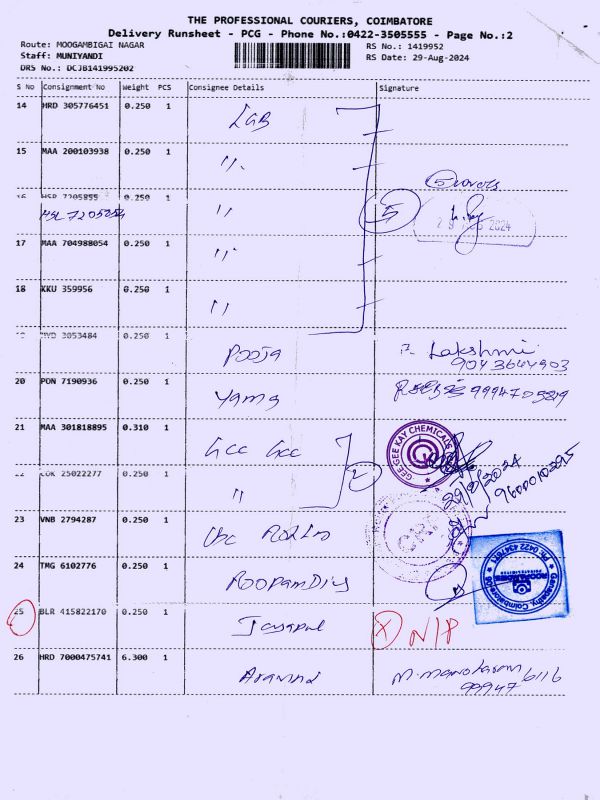 THE PROFESSIONAL COURIERS, COIMBATORE
Delivery Runsheet - PCG - Phone No.:0422-3505555 - Page No.:2
Route: MOOGAMBIGAI NAGAR
RS No.: 1419952
Staff: MUNIYANDI
RS Date: 29-Aug-2024
DRS No.: DCJB141995202
S No Consignment No Weight PCS Consignee Details Signature
14 HRD 305776451 0.250 1 LGB
15 MAA 200103938 0.250 1 "
5 covers
16 HSR 7205855 0.250 1 "
5
29 AUG 2024
17 MAA 704988054 0.250 1 "
18 KKU 359956 0.250 1 "
3053484 0.250 1 Pooja Lakshmi
9043644903
20 PON 7190936 0.250 1 Yama
21 MAA 301818895 0.310 1 Gee Gee
GEE GEE KAY CHEMICALS
29/8/2024
25022277 0.250 1 "
2
23 VNB 2794287 0.250 1
24 TMG 6102776 0.250 1
Ganapathy, Coimbatore
25 BLR 415822170 0.250 1 X N/P
26 HRD 7000475741 6.300 1 M. Manoharan
99947 6116